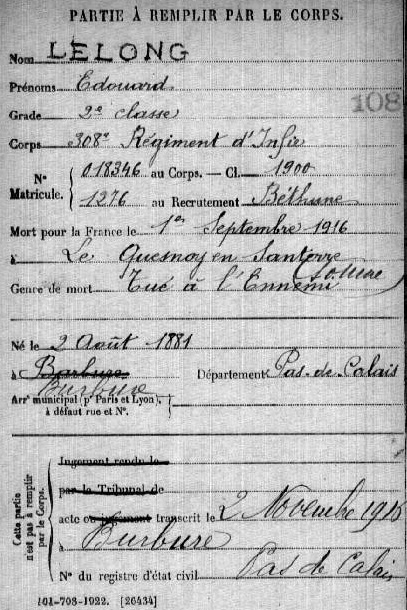 PARTIE À REMPLIR PAR LE CORPS.
Nom LELONG
Prénoms Edouard
108
Grade 2e classe
Corps 308e Régiment d'Infie
Nº Matricule. { 018346 au Corps. — Cl. 1900
1276 au Recrutement Béthune
Mort pour la France le 1er Septembre 1916
à Le Quesnoy en Santerre
(Somme)
Genre de mort Tué à l'Ennemi
Né le 2 Août 1881
à Barbure Département Pas-de-Calais
Burbure
Arrt municipal (pr Paris et Lyon),
à défaut rue et Nº.
Cette partie n'est pas à remplir par le Corps.
Jugement rendu le
par le Tribunal de
acte ou jugement transcrit le 2 Novembre 1916
à Burbure
Pas de Calais
Nº du registre d'état civil
101-708-1922. [26434]